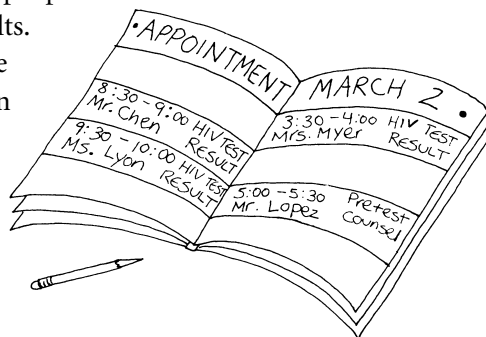 lts.
e
n
• APPOINTMENT
8:30 - 9:00 HIV TEST
Mr. Chen RESULT
9:30 - 10:00 HIV TEST
Ms. Lyon RESULT
MARCH 2 •
3:30 - 4:00 HIV TEST
Mrs. Myer RESULT
5:00 - 5:30 Pretest
Mr. Lopez Counsel